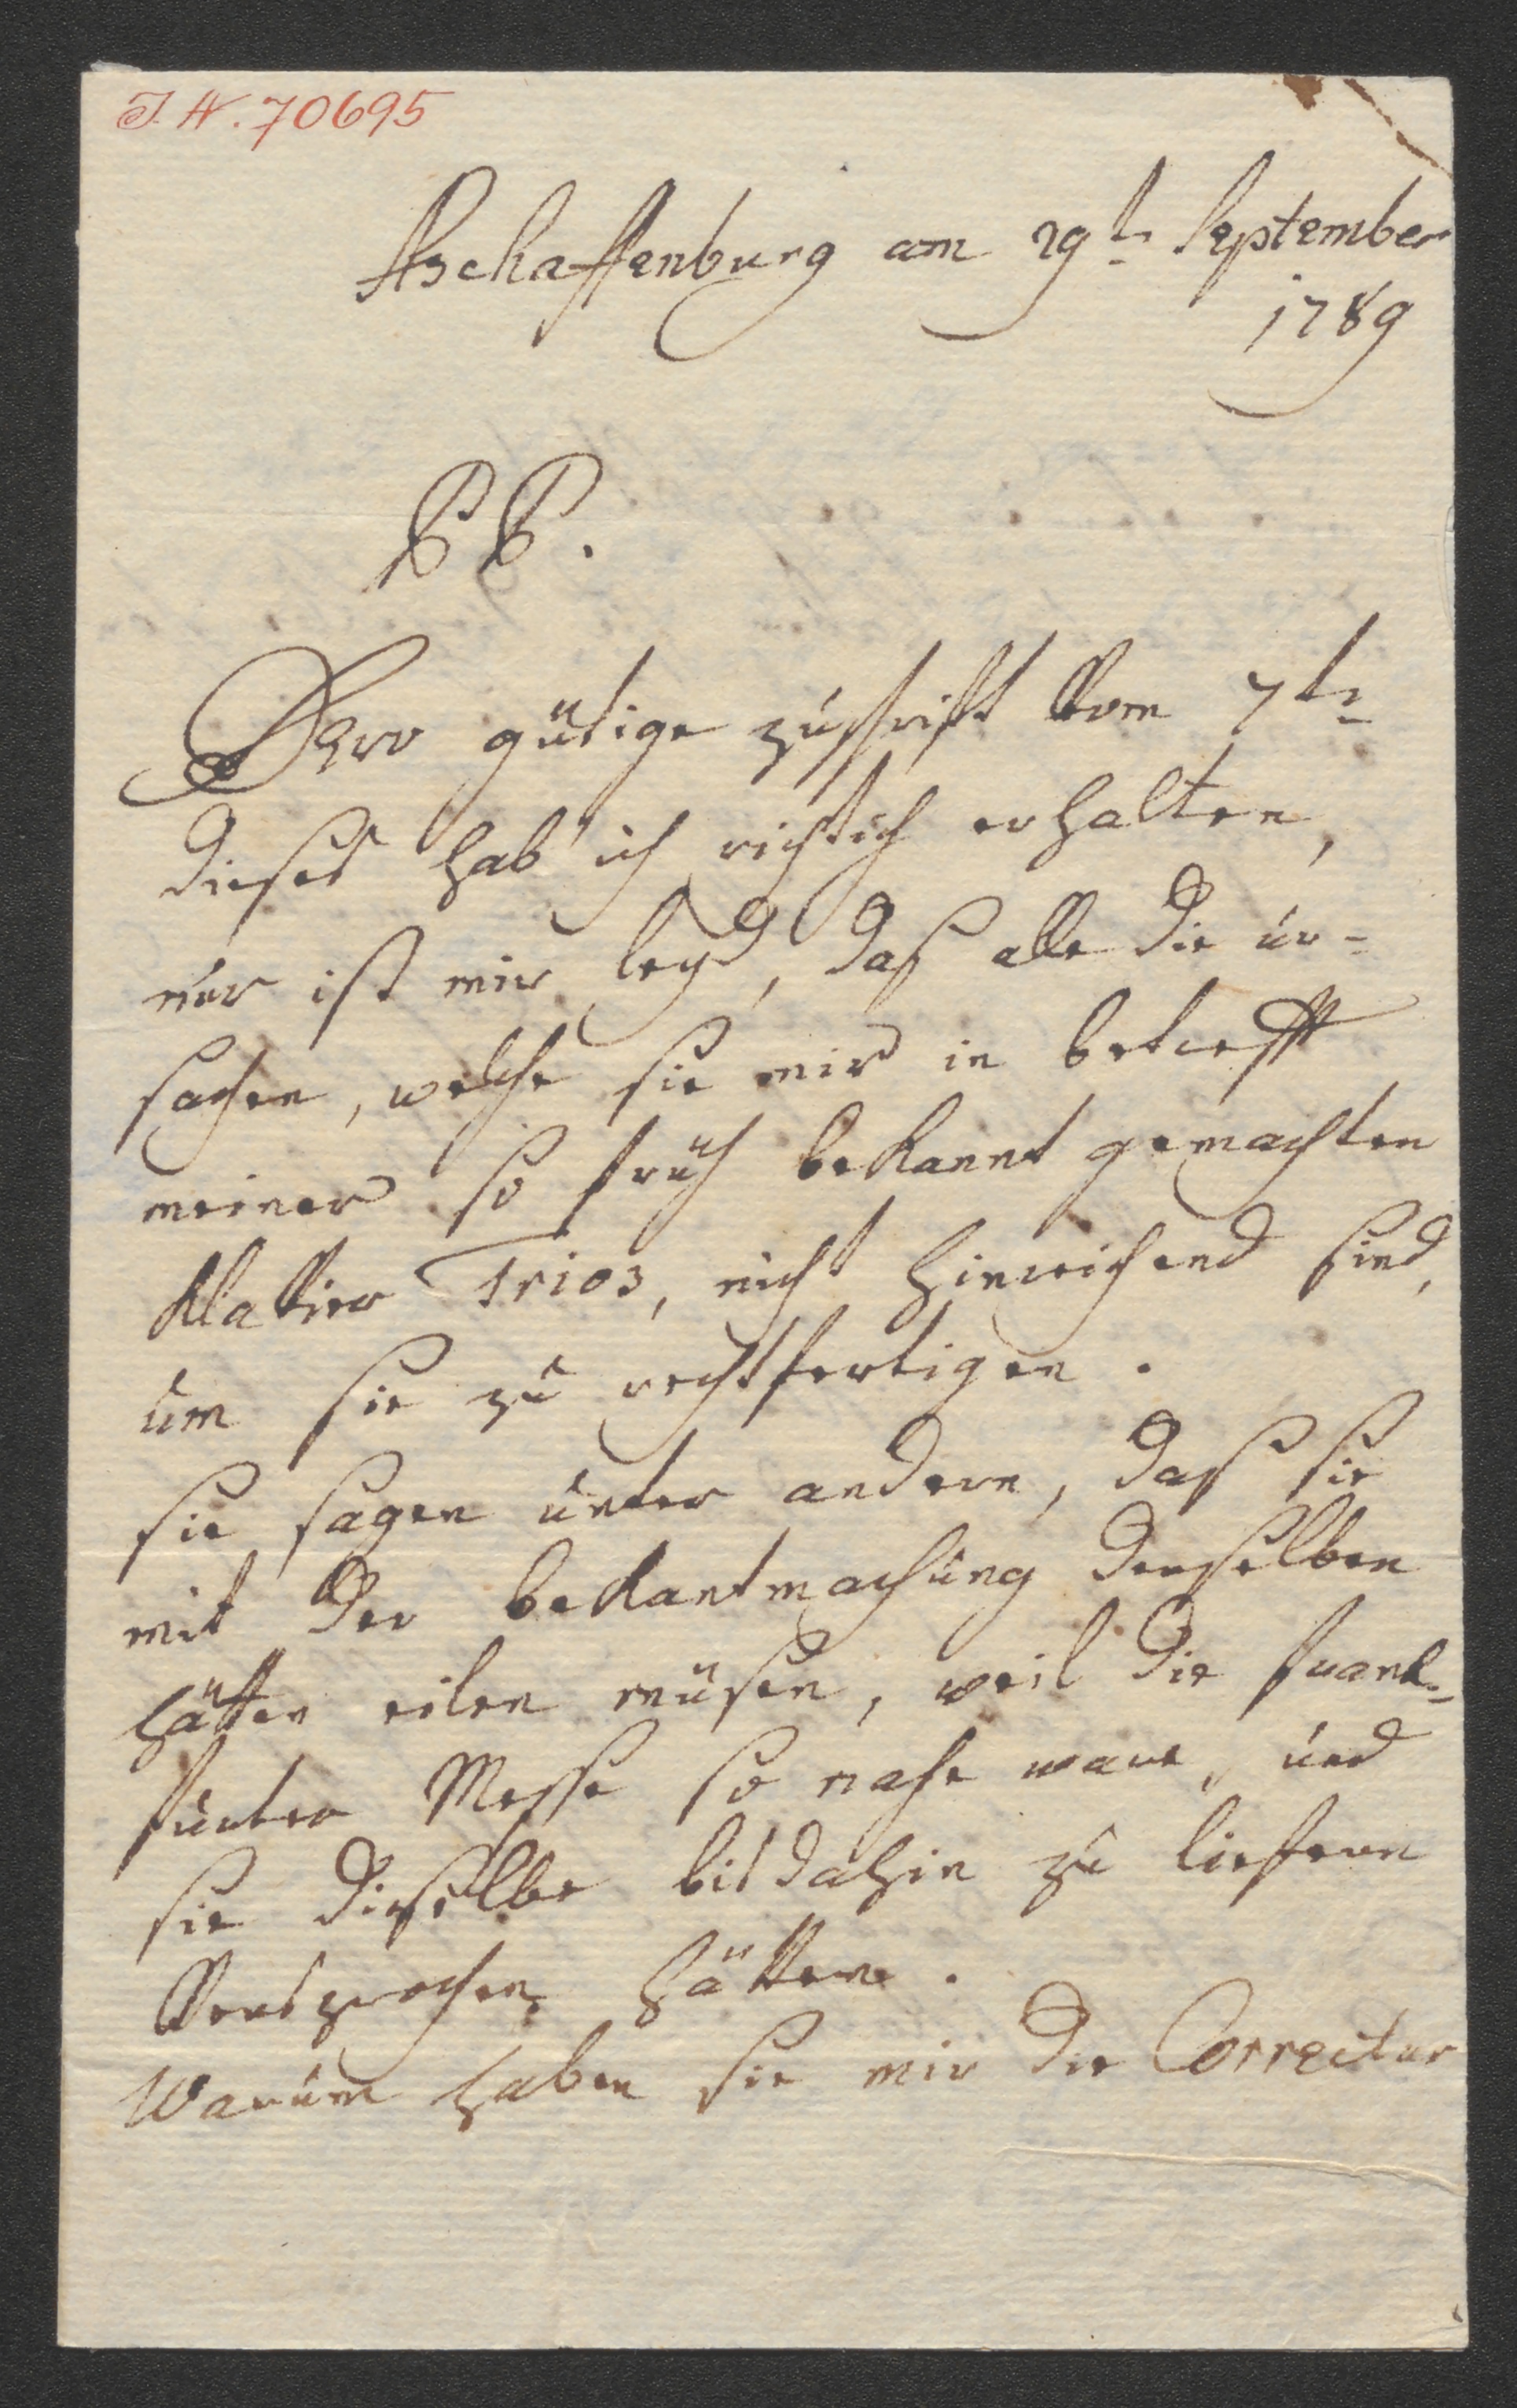 I. N. 70695
Aschaffenburg am 29t. September
1789
PP.
Dero gütige zuschrift vom 7tn
dieses hab' ich richtich erhalten,
nur ist mir leyd, daß alle die ur-
sachen, welche sie mir in betreff
meiner so früh bekannt gemachten
Klavier Trios, nicht hinreichend sind,
um sie zu rechtfertigen.
sie sagen unter andern, daß sie
mit der bekantmachung denselben
hätten eilen müsen, weil die frank-
furter Messe so nahe ware, und
sie dieselbe bis dahin zu liefern
versprochen hätten.
Warum haben sie mir die Correctur